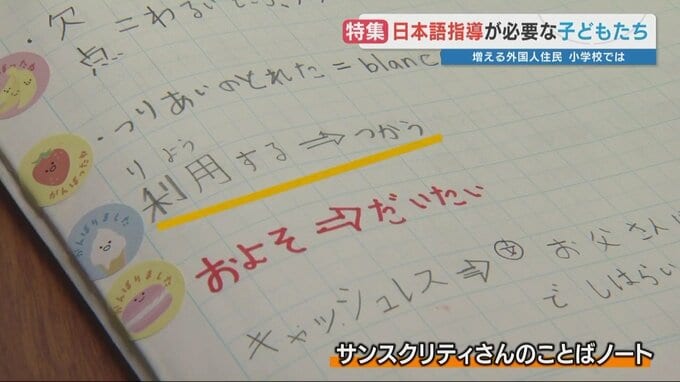 特集 日本語指導が必要な子どもたち
増える外国人住民 小学校では
・欠点=わるい
・つりあいのとれた=blanc
りよう
利用する⇒つかう
およそ⇒だいたい
キャッシュレス⇒文 お父さん
でしはらい
がんばったね
がんばりました
がんばりました
サンスクリティさんのことばノート